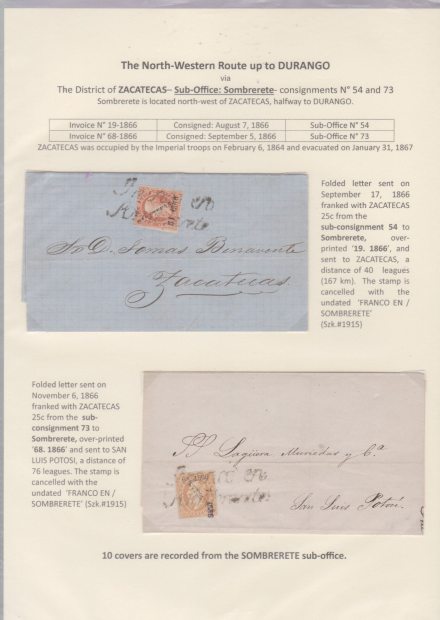 The North-Western Route up to DURANGO
via
The District of ZACATECAS– Sub-Office: Sombrerete- consignments N° 54 and 73
Sombrerete is located north-west of ZACATECAS, halfway to DURANGO.
Invoice N° 19-1866 Consigned: August 7, 1866 Sub-Office N° 54
Invoice N° 68-1866 Consigned: September 5, 1866 Sub-Office N° 73
ZACATECAS was occupied by the Imperial troops on February 6, 1864 and evacuated on January 31, 1867
Folded letter sent on
September 17, 1866
franked with ZACATECAS
25c from the
sub-consignment 54 to
Sombrerete, over-
printed '19. 1866', and
sent to ZACATECAS, a
distance of 40 leagues
(167 km). The stamp is
cancelled with the
undated 'FRANCO EN /
SOMBRERETE'
(Szk.#1915)
Sr. D. Tomas Benavente
Zacatecas.
Folded letter sent on
November 6, 1866
franked with ZACATECAS
25c from the sub-
consignment 73 to
Sombrerete, over-printed
'68. 1866' and sent to SAN
LUIS POTOSI, a distance of
76 leagues. The stamp is
cancelled with the
undated 'FRANCO EN /
SOMBRERETE' (Szk.#1915)
Franco en
Sombrerete
San Luis Potosí.
10 covers are recorded from the SOMBRERETE sub-office.